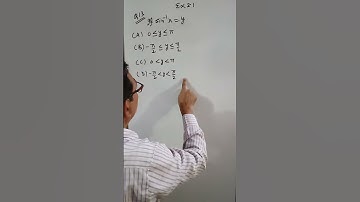 Ex 2.1
Q13 If sin⁻¹x = y
(A) 0 ≤ y ≤ π
(B) -π/2 ≤ y ≤ π/2
(C) 0 < y < π
(D) -π/2 < y < π/2